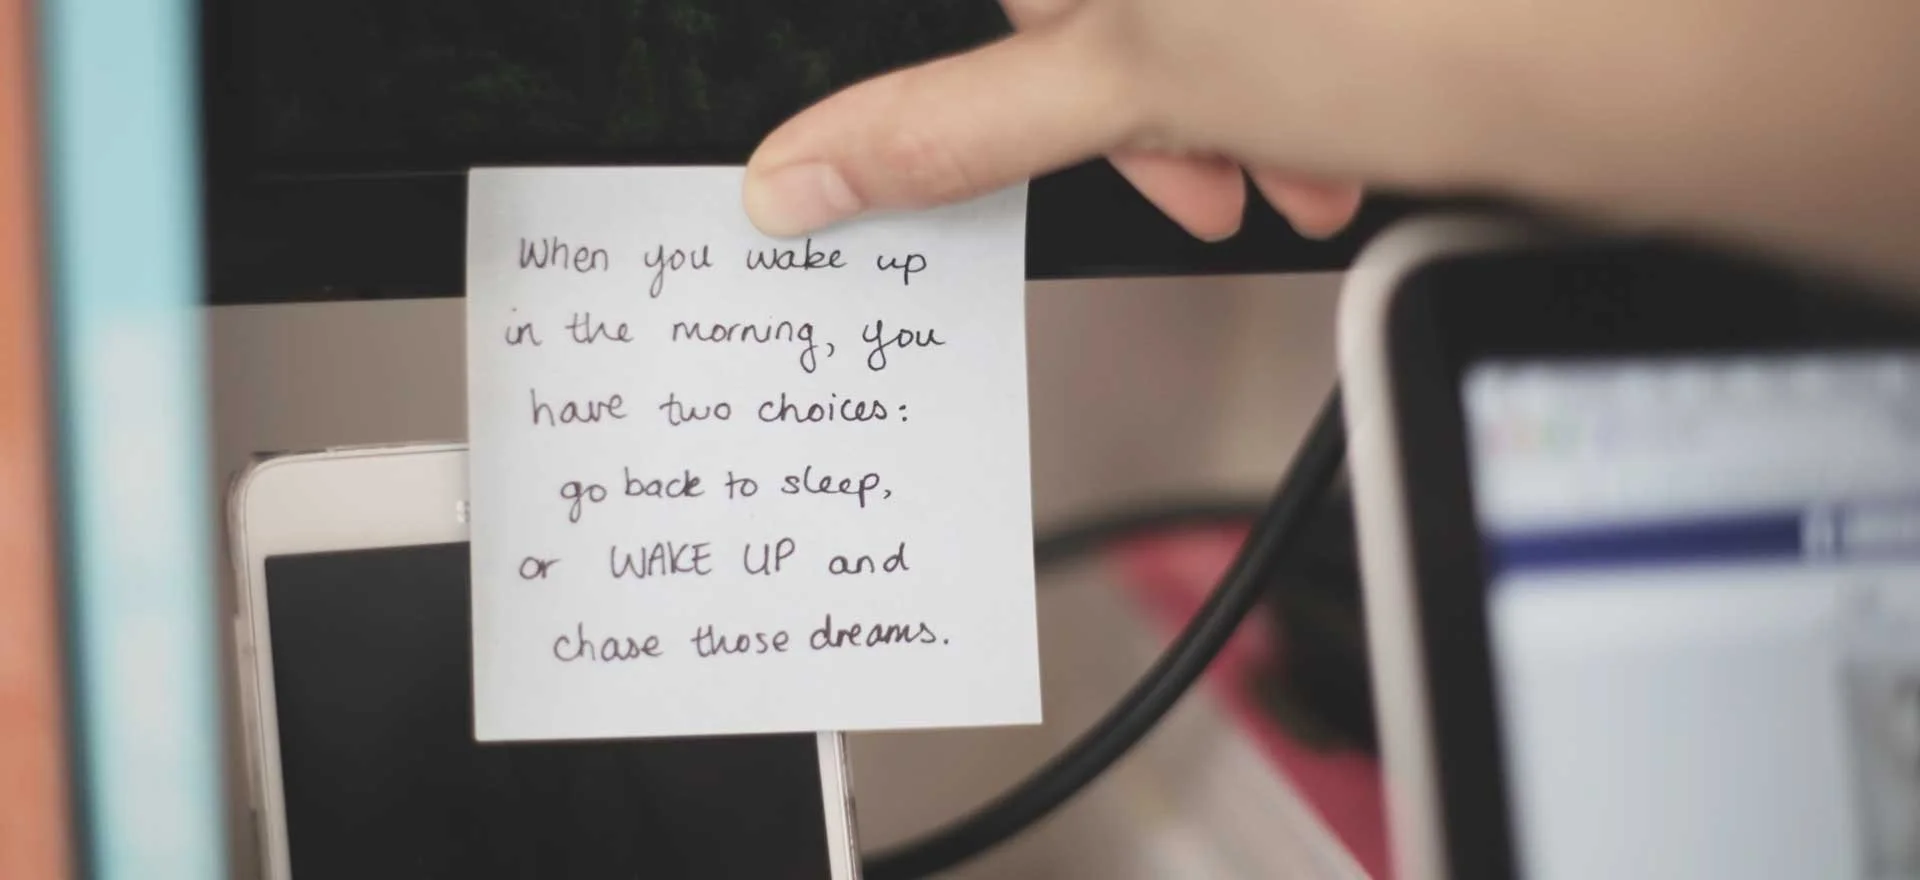 When you wake up
in the morning, you
have two choices:
go back to sleep,
or WAKE UP and
chase those dreams.